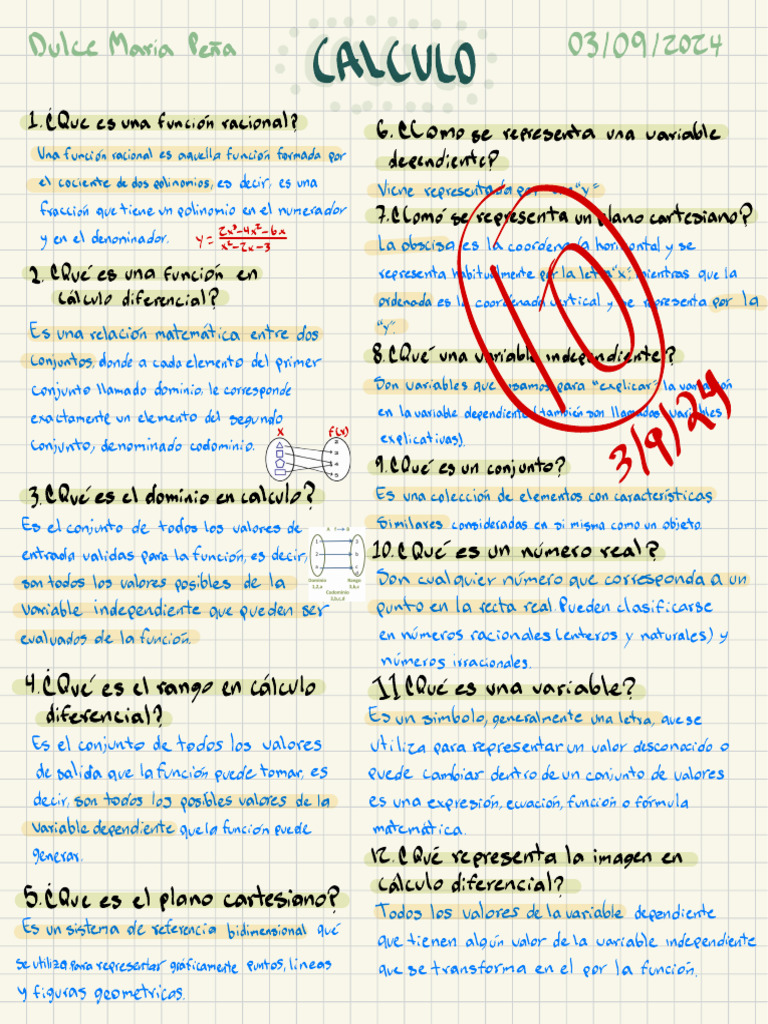 Dulce Maria Peña
CALCULO
03/09/2024
1. ¿Que es una función racional?
Una función racional es aquella función formada por
el cociente de dos polinomios, es decir, es una
fracción que tiene un polinomio en el numerador
y en el denominador.
y = 2x³-4x²-6x / x²-2x-3
2. ¿Qué es una función en
cálculo diferencial?
Es una relación matemática entre dos
conjuntos, donde a cada elemento del primer
conjunto llamado dominio, le corresponde
exactamente un elemento del segundo
conjunto, denominado codominio.
x
f(x)
3. ¿Qué es el dominio en calculo?
Es el conjunto de todos los valores de
entrada validas para la función, es decir,
son todos los valores posibles de la
variable independiente que pueden ser
evaluados de la función.
Dominio
Rango
Codominio
4. ¿Qué es el rango en cálculo
diferencial?
Es el conjunto de todos los valores
de salida que la función puede tomar, es
decir, son todos los posibles valores de la
variable dependiente que la función puede
generar.
5. ¿Que es el plano cartesiano?
Es un sistema de referencia bidimensional qué
se utiliza para representar gráficamente puntos, lineas
y figuras geometricas.
6. ¿Como se representa una variable
dependiente?
Viene representada por "y"
7. ¿Comó se representa un plano cartesiano?
La obscisa es la coordenada horizontal y se
representa habitualmente por la letra "x", mientras que la
ordenada es la coordenada vertical y se representa por la
"y".
8. ¿Qué una variable independiente?
Son variables que usamos para "explicar" la variación
en la variable dependiente (también son llamadas variables
explicativas).
9. ¿Qué es un conjunto?
Es una colección de elementos con características
similares consideradas en si misma como un objeto.
10. ¿Qué es un número real?
Son cualquier número que corresponda a un
punto en la recta real. Pueden clasificarse
en números racionales (enteros y naturales) y
números irracionales.
11 ¿Qué es una variable?
Es un símbolo, generalmente una letra, que se
utiliza para representar un valor desconocido o
puede cambiar dentro de un conjunto de valores
es una expresión, ecuación, función o fórmula
matemática.
12. ¿Qué representa la imagen en
cálculo diferencial?
Todos los valores de la variable dependiente
que tienen algún valor de la variable independiente
que se transforma en el por la función.
10
3/9/24